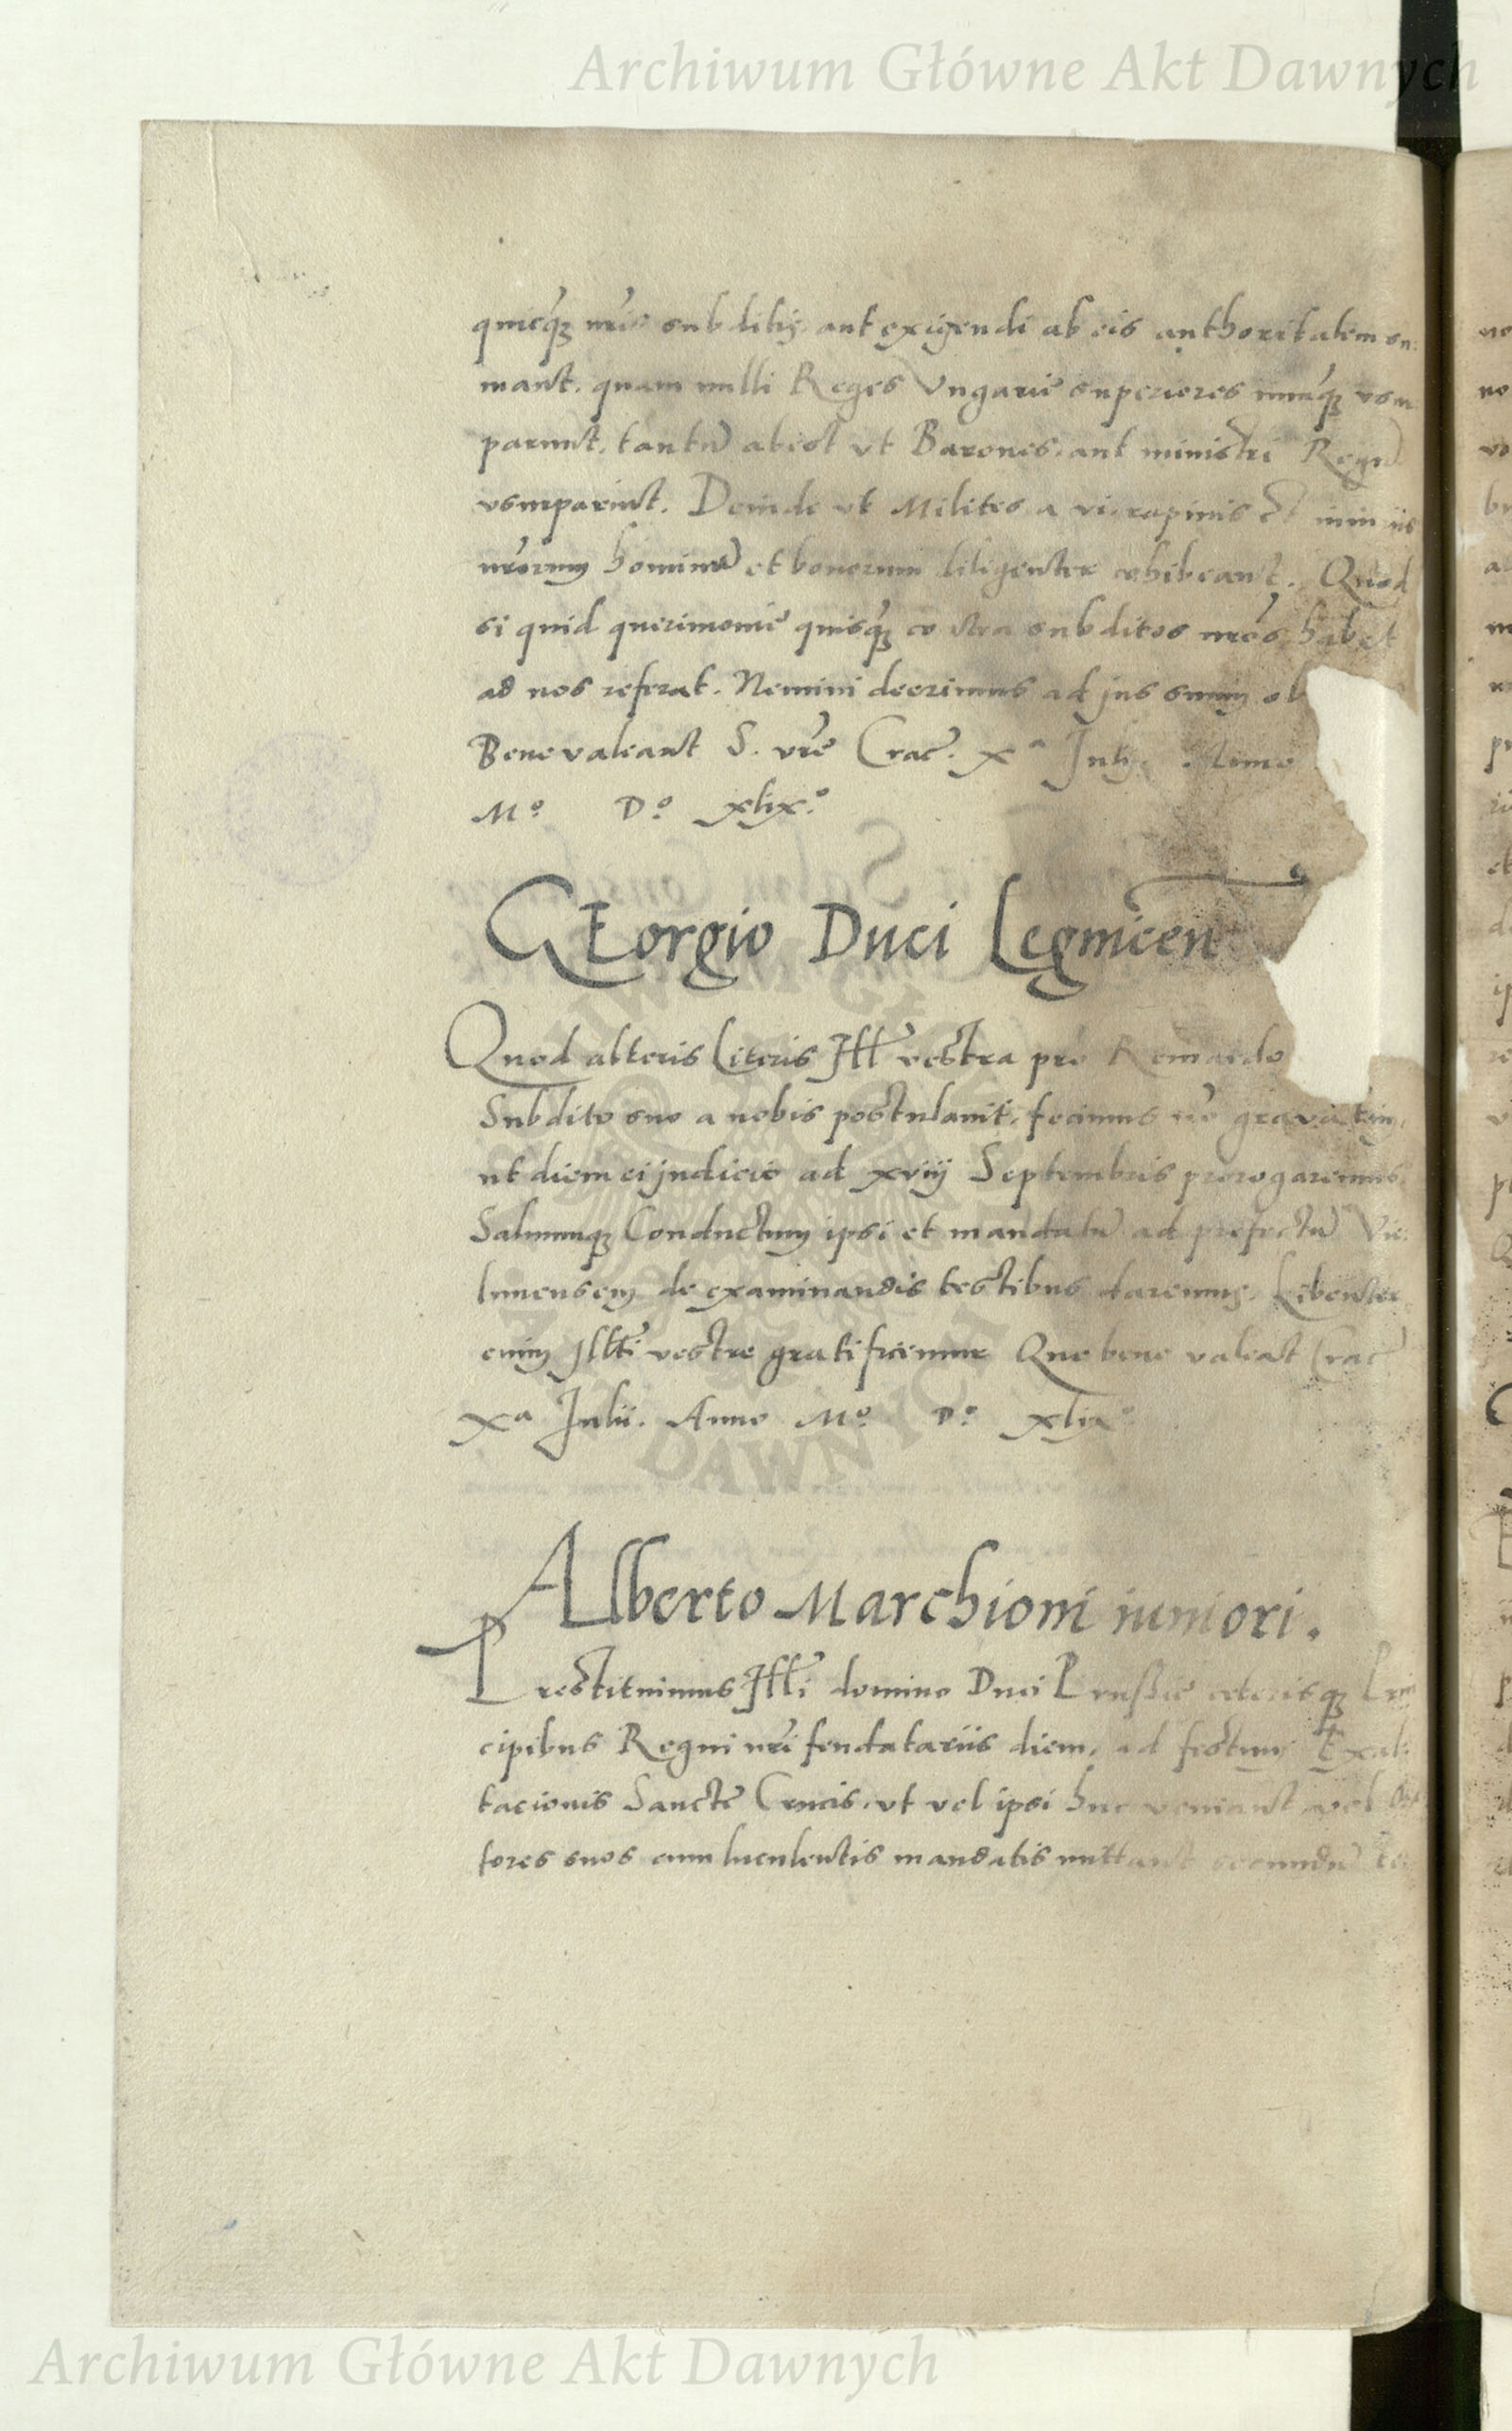 Archiwum Główne Akt Dawnych
quicq̃ꝫ nr̃is subditis, aut exigendi ab eis authoritatem su:
mant. quam nulli Reges Vngarie superiores nunq̃ꝫ vsur
parunt, tantũ abest vt Barones, aut ministri Regũ
vsurparint. Deinde vt Milites a vi, rapinis et iniuriis
nr̃orum hominũ et bonorum diligenter cohibeant. Quod
si quid querimonie quisq̃ꝫ contra subditos nr̃os habet
ad nos referat. Nemini deerimus ad jus suum ob
Bene valeant S. vr̃e Crac̃. Xᵃ Julij. Anno
Mº Dº xlixº
GEorgio Duci Legnicen
Quod alteris Literis Ill̃ vestra pro
Subdito suo a nobis postulauit, fecimus nõ grauatim,
ut diem ei judicio ad xviij Septembris prorogaremus
Saluumqꝫ Conductum ipsi et mandatũ ad prefectũ Vie:
lunensem de examinandis testibus daremus. Libenter
enim Ill̃ti vestre gratificamur Que bene valeat Crac̃
Xᵃ Julii. Anno Mº Dº xlixº
ALberto Marchioni iuniori.
Prestituimus Ill̃i domino Duci Prussie ceterisqꝫ Prin
cipibus Regni nr̃i feudatariis diem, ad festum Exal:
tacionis Sancte Crucis, vt vel ipsi huc veniant, vel Ora
tores suos cum luculentis mandatis mittant secundũ
ARCHIWUM GŁÓWNE AKT DAWNYCH
Archiwum Główne Akt Dawnych